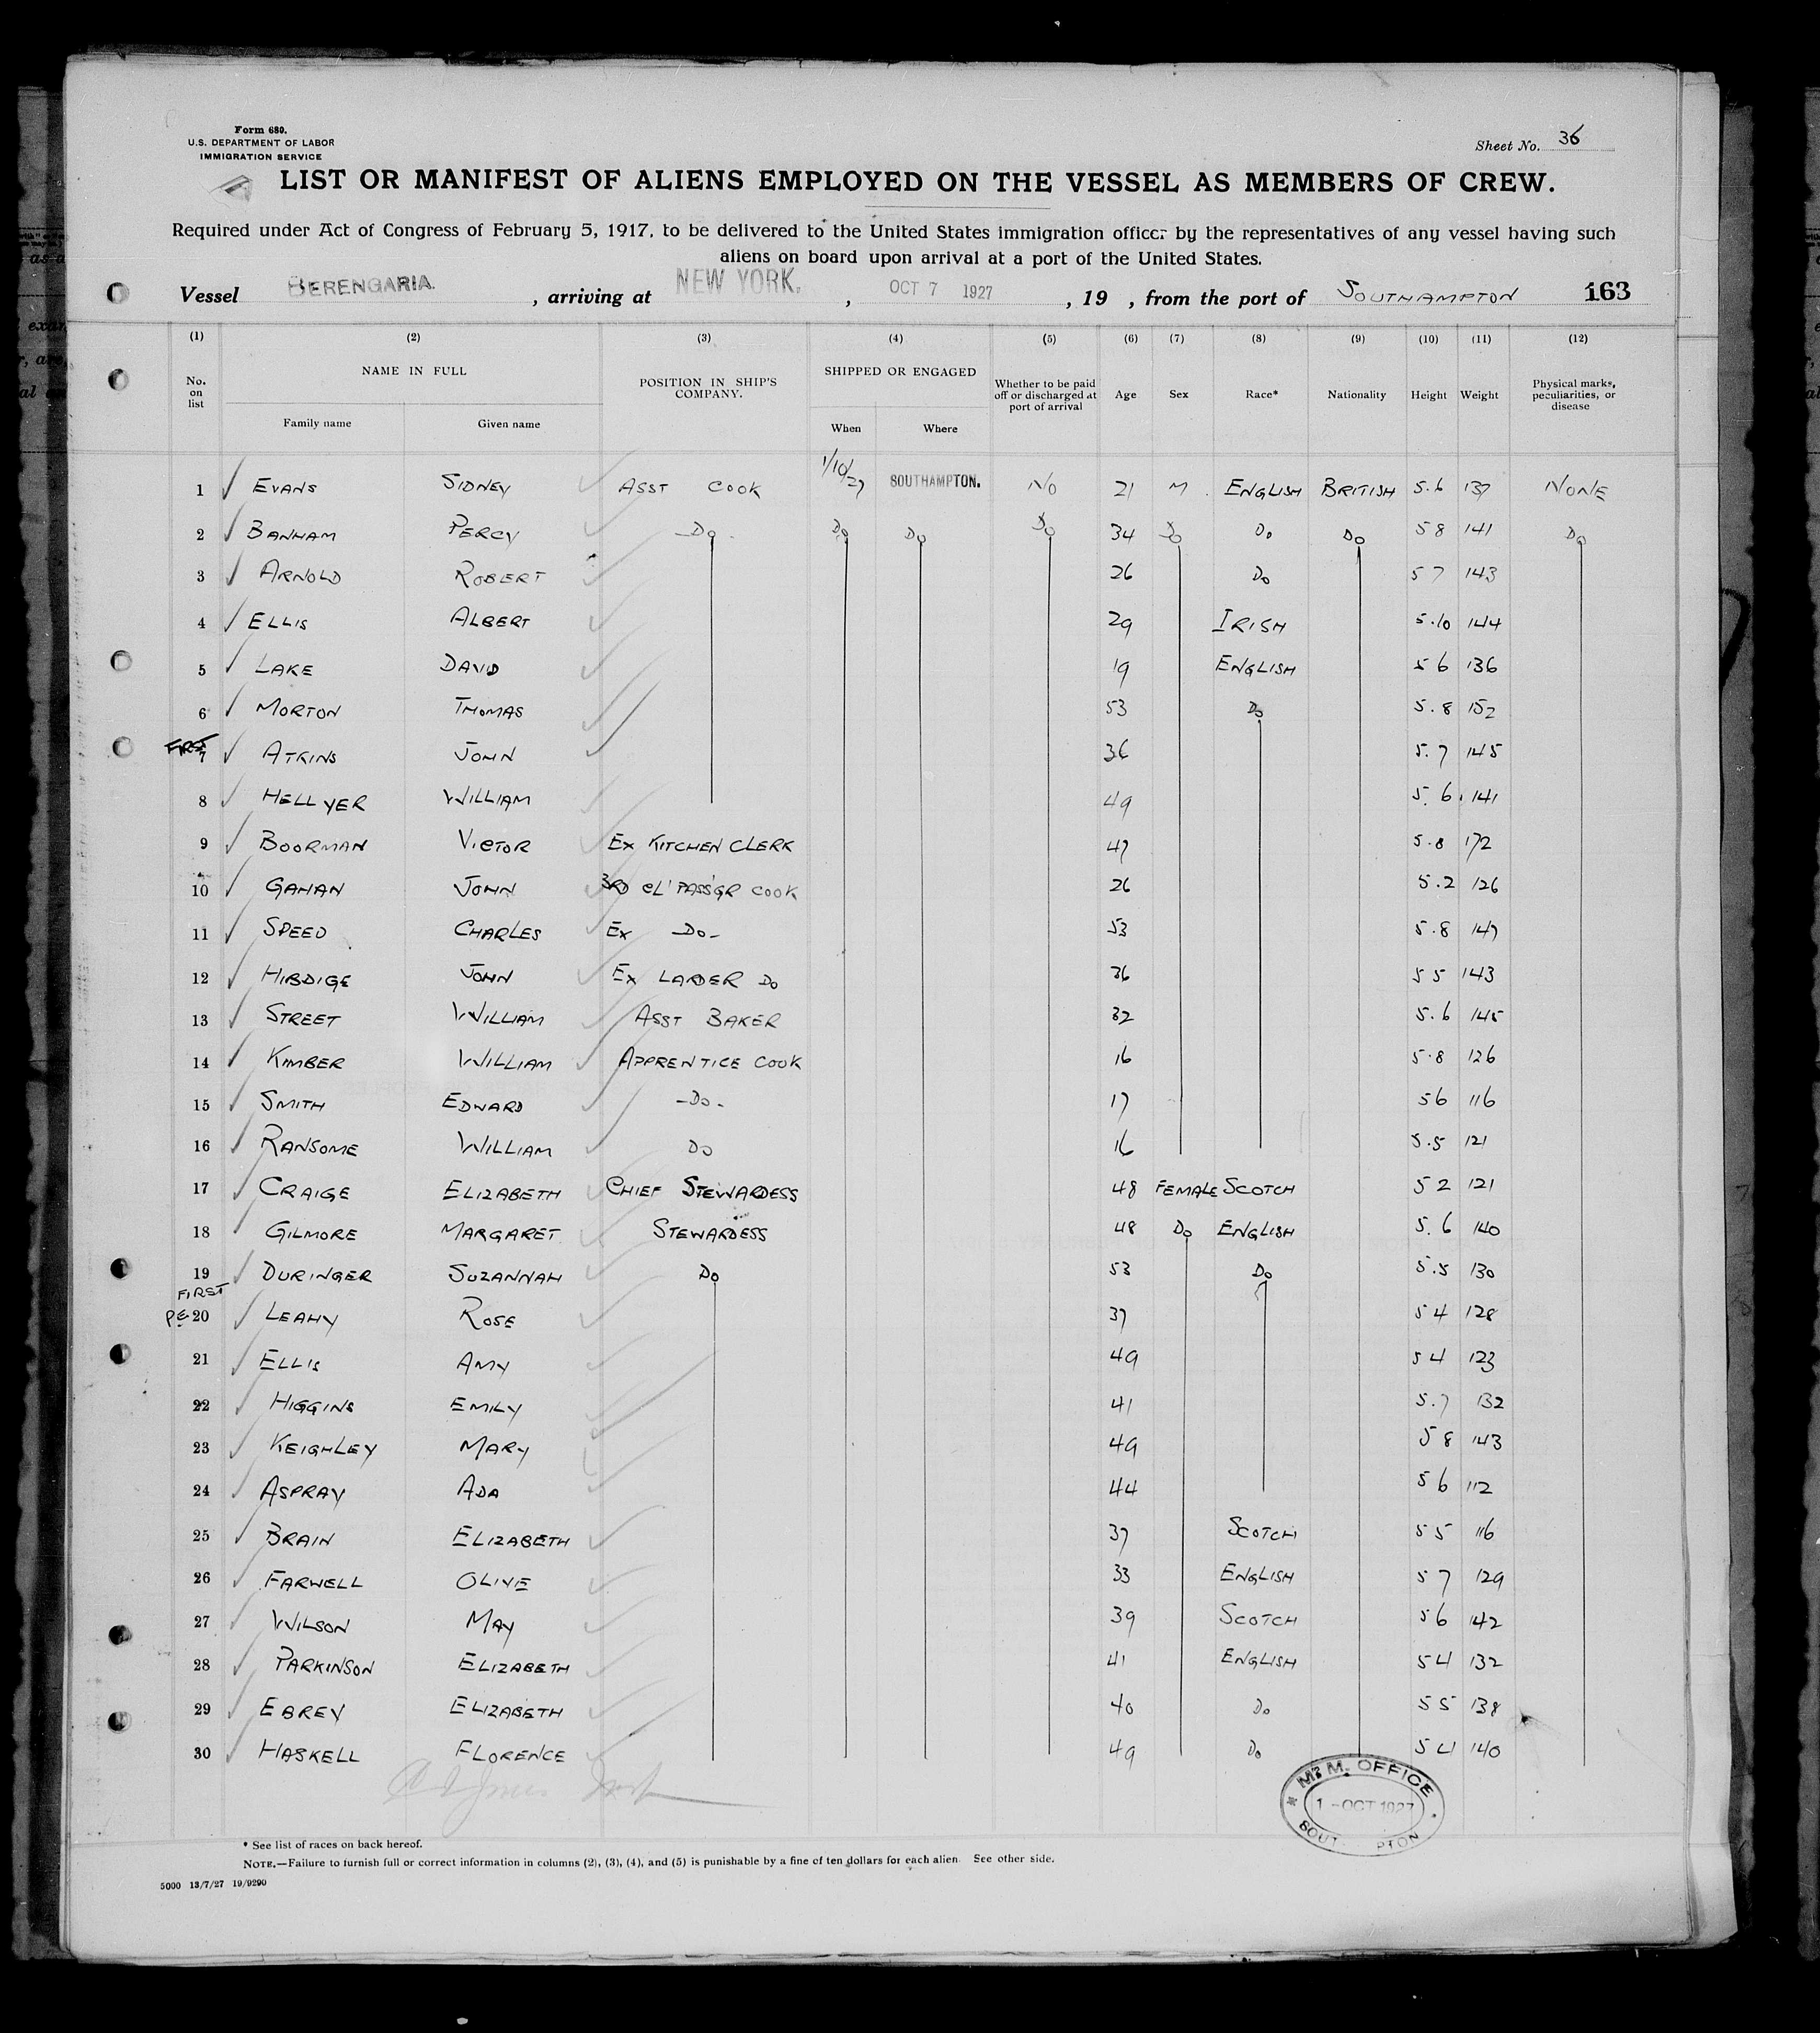 Form 680.
U.S. DEPARTMENT OF LABOR
IMMIGRATION SERVICE
Sheet No. 36
LIST OR MANIFEST OF ALIENS EMPLOYED ON THE VESSEL AS MEMBERS OF CREW.
Required under Act of Congress of February 5, 1917, to be delivered to the United States immigration officer by the representatives of any vessel having such
aliens on board upon arrival at a port of the United States.
Vessel BERENGARIA , arriving at NEW YORK. , OCT 7 1927 , 19 , from the port of SOUTHAMPTON 163
(1) (2) (3) (4) (5) (6) (7) (8) (9) (10) (11) (12)
No. on list NAME IN FULL Family name Given name POSITION IN SHIP'S COMPANY. SHIPPED OR ENGAGED When Where Whether to be paid off or discharged at port of arrival Age Sex Race* Nationality Height Weight Physical marks, peculiarities, or disease
1 EVANS SIDNEY ASST COOK 1/10/27 SOUTHAMPTON. NO 21 M. ENGLISH BRITISH 5.6 137 NONE
2 BANHAM PERCY -Do- Do Do Do 34 Do Do Do 5 8 141 Do
3 ARNOLD ROBERT 26 Do 5 7 143
4 ELLIS ALBERT 29 IRISH 5.10 144
5 LAKE DAVID 19 ENGLISH 5 6 136
6 MORTON THOMAS 53 Do 5.8 152
FIRST
7 ATKINS JOHN 36 5.7 145
8 HELLYER WILLIAM 49 5.6 141
9 BOORMAN VICTOR EX KITCHEN CLERK 47 5.8 172
10 GAHAN JOHN 3RD CL' PASS'GR COOK 26 5.2 126
11 SPEED CHARLES EX -Do- 53 5.8 147
12 HIBDIGE JOHN EX LARDER Do 36 5 5 143
13 STREET WILLIAM ASST BAKER 32 5.6 145
14 KIMBER WILLIAM APPRENTICE COOK 16 5.8 126
15 SMITH EDWARD -Do- 17 5 6 116
16 RANSOME WILLIAM Do 16 5.5 121
17 CRAIGE ELIZABETH CHIEF STEWARDESS 48 FEMALE SCOTCH 5 2 121
18 GILMORE MARGARET STEWARDESS 48 Do ENGLISH 5.6 140
19 DURINGER SUZANNAH Do 53 Do 5.5 130
FIRST
20 LEAHY ROSE 37 5 4 128
21 ELLIS AMY 49 5 4 123
22 HIGGINS EMILY 41 5.7 132
23 KEIGHLEY MARY 49 5 8 143
24 ASPRAY ADA 44 5 6 112
25 BRAIN ELIZABETH 37 SCOTCH 5 5 116
26 FARWELL OLIVE 33 ENGLISH 5 7 129
27 WILSON MAY 39 SCOTCH 5 6 142
28 PARKINSON ELIZABETH 41 ENGLISH 5 4 132
29 EBREY ELIZABETH 40 Do 5 5 138
30 HASKELL FLORENCE 49 Do 5 4 140
M. M. OFFICE
1 - OCT 1927
* See list of races on back hereof.
NOTE.—Failure to furnish full or correct information in columns (2), (3), (4), and (5) is punishable by a fine of ten dollars for each alien. See other side.
5000 13/7/27 19/9290